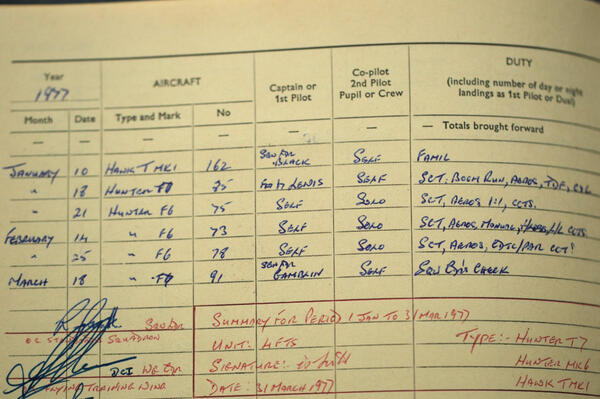 Year AIRCRAFT Captain or 1st Pilot Co-pilot 2nd Pilot Pupil or Crew DUTY (including number of day or night landings as 1st Pilot or Dual)
1977
Month Date Type and Mark No
— — — — — — — Totals brought forward
JANUARY 10 HAWK T MK1 162 SQN LDR BLACK SELF FAMIL
" 18 HUNTER 75 LEWIS SELF SCT: BOOM RUN, AEROS,
" 21 HUNTER F6 75 SELF SOLO SCT, AEROS 1:1, CCTS.
FEBRUARY 14 " F6 73 SELF SOLO SCT, AEROS,
" 25 " F6 78 SELF SOLO SCT, AEROS,
MARCH 18 " 91 SQN LDR GAMBLIN SELF SQN CHECK
SQN LDR SUMMARY FOR PERIOD 1 JAN TO 31 MAR 1977
OC SQUADRON UNIT: 4FTS TYPE:- HUNTER T7
WG CDR SIGNATURE:- HUNTER MK6
FLYING TRAINING WING DATE: 31 MARCH 1977 HAWK TMK1